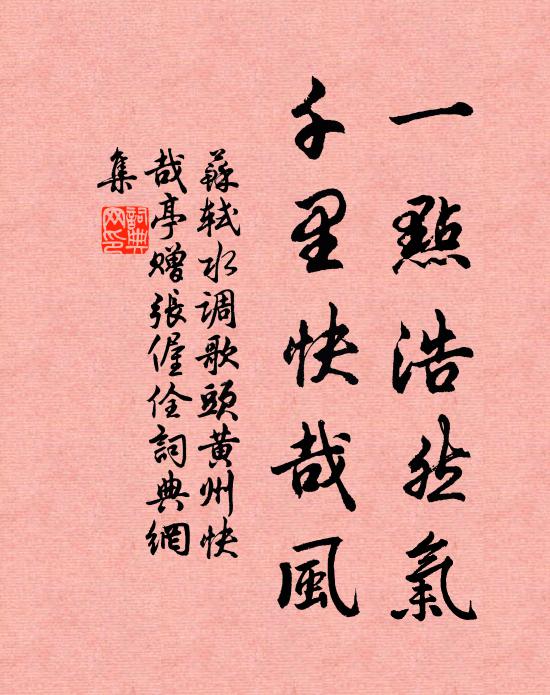 一點浩然氣
千里快哉風
蘇軾水调歌頭黄州快
哉亭贈張偓佺詞典網
集
詞典網印